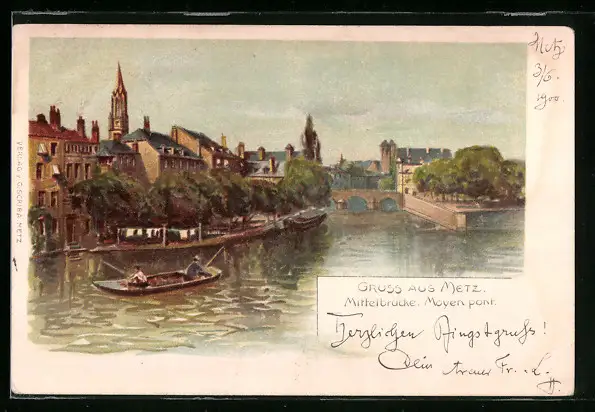 Metz
3/6.
1900.
VERLAG v. C. SCRIBA METZ
GRUSS AUS METZ.
Mittelbrücke. Moyen pont.
Herzlichen Pfingstgruß!
Dein treuer Fr.